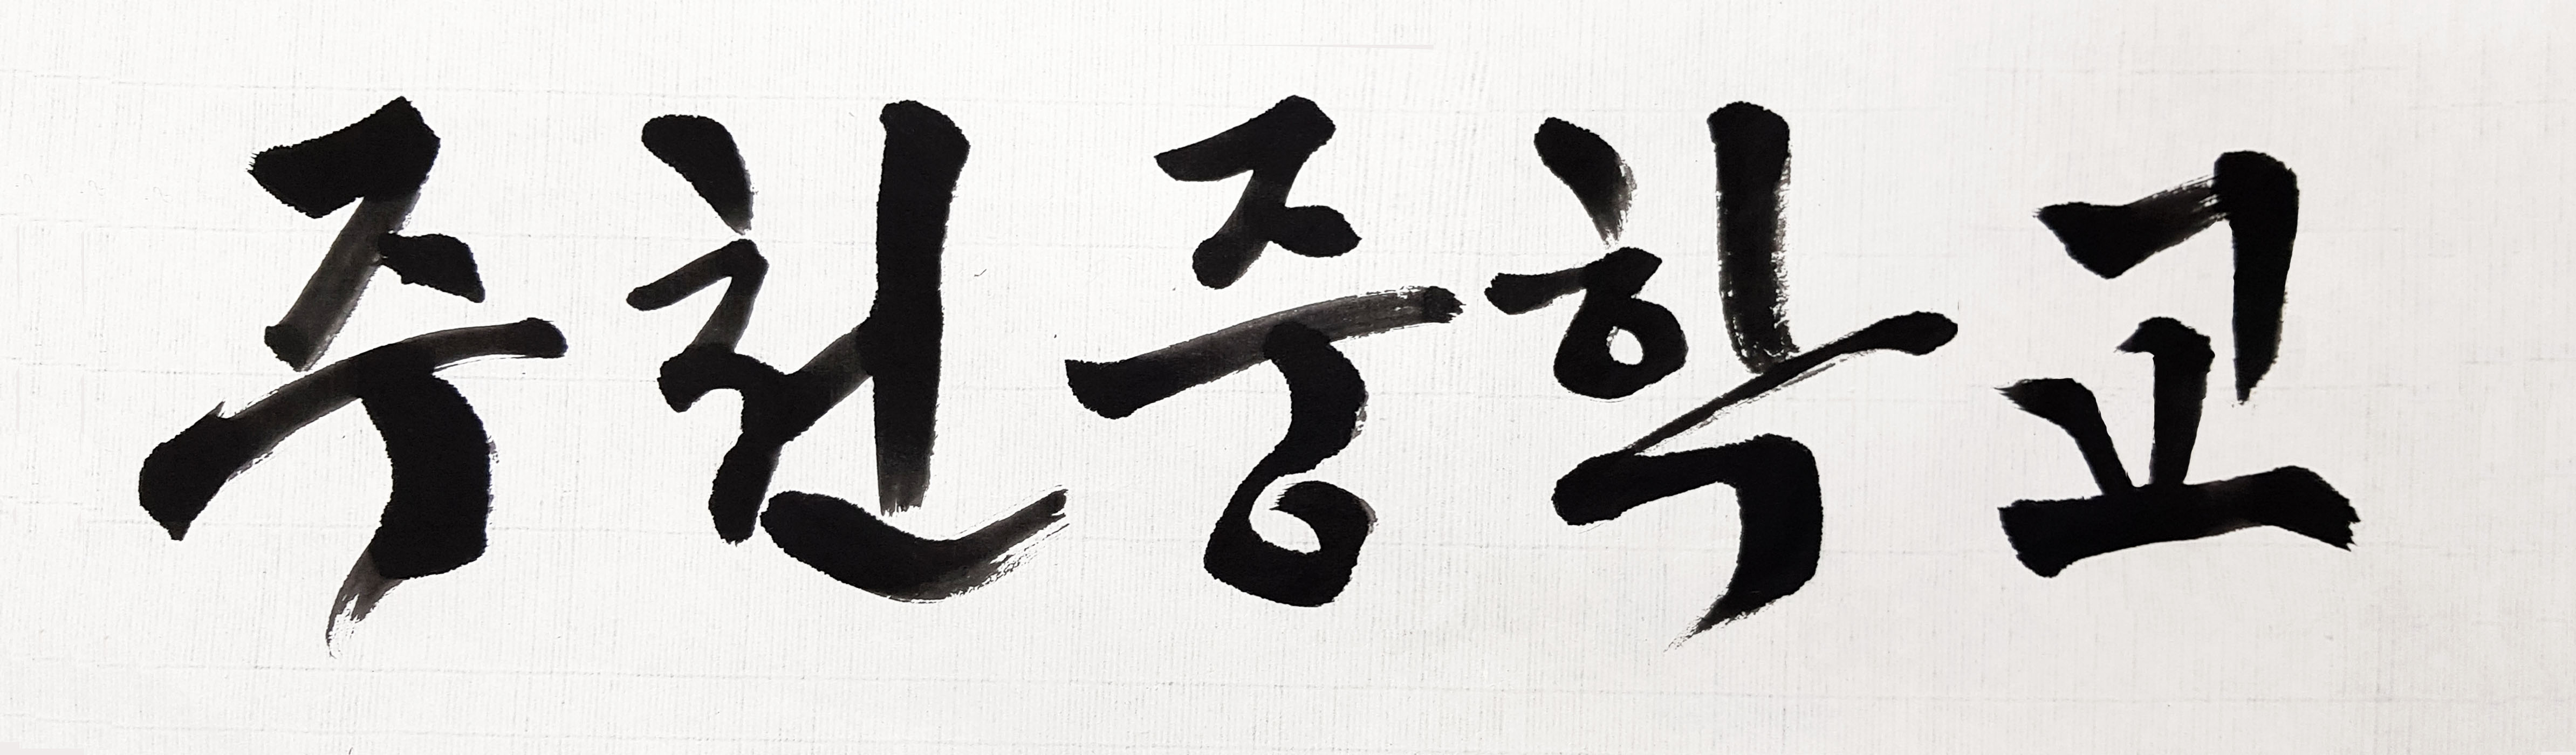 주천중학교